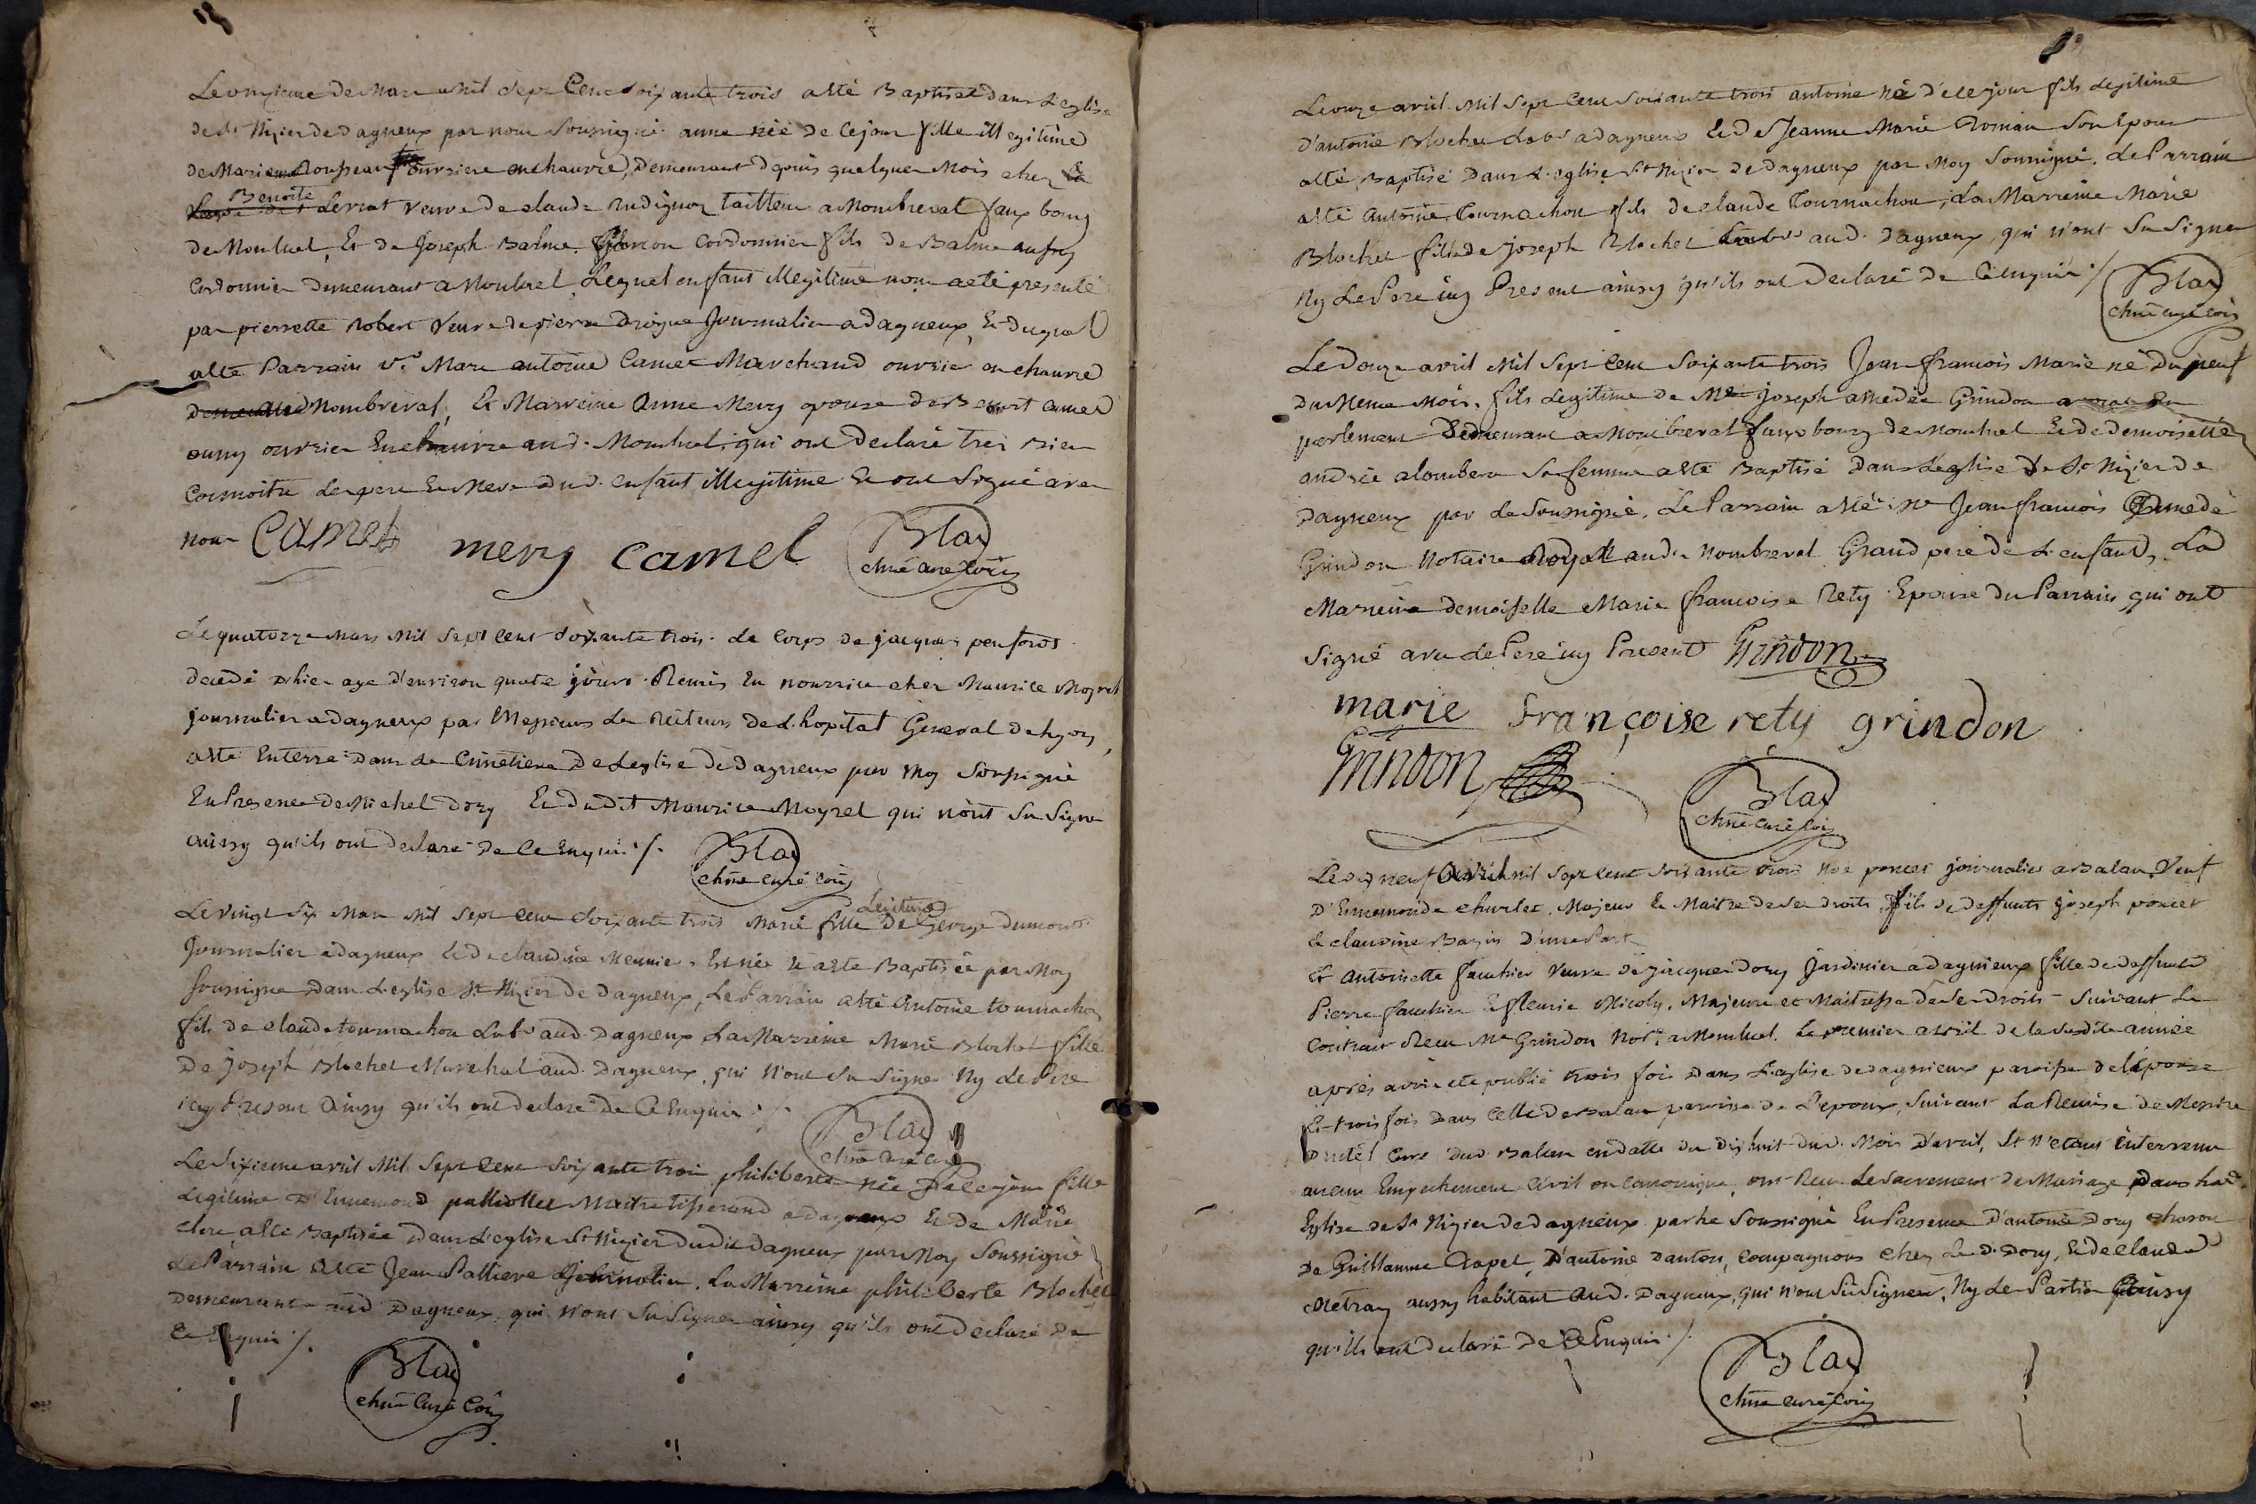 Le onzieme de Mars Mil Sept Cent Soixante trois a été Baptisée dans L'eglise
de St Nizier de Dagneux par nous Soussigné anne née de Ce jour fille illegitime
de Marie Rousseau ouvriere en chauvre, Demeurant depuis quelques Mois chez
Benoite Levrat veuve de claude tailleur a Mombreval faux bourg
de Monluel, Et de Joseph Balme garcon Cordonnier fils de Balme aussy
Cordonnier demeurant a Monluel, Lequel enfant illegitime nous a eté presenté
par pierrette Robert Veuve de pierre Journalier a Dagneux, Et duquel
a été Parrain Sr Marc antoine Camet Marchand ouvrier en chauvre
Mombreval, Et Marreine Anne Mery epouse de Camet
aussy ouvrier En chauvre aud. Monluel, qui ont Declaré tres bien
Connoitre Le pere Et Mere dud. enfant illegitime Et ont Signé avec
nous Camet mery camel Blay
chne curé Coiy
Le quatorze Mars Mil Sept Cent Soixante trois Le Corps de jacques
decedé d'hier age d'environ quatre jours Remis En nourrice chez Maurice Moyret
journalier a dagneux par Messieurs Les Recteurs de L'hopital General de Lyon,
a été Enterré Dans Le Cimetiere De L'eglise de Dagneux par Moy Soussigné
En Presence de Michel Dory Et dudit Maurice Moyret qui n'ont Su Signer
ainsy qu'ils ont declaré de Ce Enquis ./.
Blay
chne curé Coiy
Legitime
Le vingt Six Mars Mil Sept Cent Soixante trois Marie fille De George dumont
Journalier a dagneux Et de claudine Meunier Est née Et a été Baptisée par Moy
Soussigné Dans L'eglise St Nizier de Dagneux, Le Parrain a été Antoine tournachon
fils de claude tournachon Labr aud. Dagneux La Marreine Marie Blochet fille
De Joseph Blochet Marechal aud. Dagneux, qui N'ont Su Signer Ny Le Pere
icy Present Ainsy qu'ils ont declaré de Ce Enquis ./.
Blay
chne curé Coiy
Le Sixieme avril Mil Sept Cent Soixante trois philiberte née de Ce jour fille
Legitime D'Ennemond Maitre tisserand a dagneux Et de Marie
a été Baptisée Dans L'eglise St Nizier Dudit dagneux par Moy Soussigné
Le Parrain a été Jean Pallier Journalier. La Marreine philiberte Blochet
Demeurant aud Dagneux, qui N'ont Su Signer ainsy qu'ils ont Declaré de
Ce Enquis ./.
Blay
chne Curé Coiy
Le onze avril Mil Sept Cent Soixante trois antoine Né d'e ce jour fils Legitime
D'antoine Blochet Labr a dagneux Et de Jeanne Marie Romain Son Epouse
a été Baptisé Dans L'eglise St Nizier de Dagneux par Moy Soussigné. Le Parrain
a été Antoine Tournachon fils de claude Tournachon, La Marreine Marie
Blochet fille de joseph Blochet aud. Dagneux, qui N'ont Su Signer
Ny Le Pere icy Present ainsy qu'ils ont Declaré De Ce Enquis ./.
Blay
chne curé Coiy
Le Douze avril Mil Sept Cent Soixante trois Jean francois Marie né Du Neuf
Du Meme Mois, fils Legitime de Me Joseph amedée Grindon avocat En
parlement Demeurant a Mombreval faux bourg de Monluel Et de demoiselle
andrée alombert Sa femme a été Baptisé Dans L'eglise De St Nizier de
Dagneux par Le Soussigné. Le Parrain a été Me Jean francois Amedé
Grindon Notaire Royal aud. Mombreval Grand pere de L'enfant, La
Marreine demoiselle Marie francoise Rety Epouse Du Parrain qui ont
Signé avec Le Pere icy Present Grindon
marie françoise rety grindon
Grindon
Blay
chne curé Coiy
Le dix neuf Avril Mil Sept Cent Soixante trois poncet journalier a Balan, Veuf
D'Ennemonde Majeur Et Maitre de Ses droits, fils de deffunts joseph poncet
Et claudine D'une Part
Et Antoinette fauchier Veuve de jacques dory Jardinier a dagnieux fille de deffunts
Pierre fauchier Et fleurie Nicoly, Majeure et Maitresse de Ses Droits Suivant Le
Contrat Recu Me Grindon Notre a Monluel Le premier avril de la Susdite année
après avoir été publié trois fois Dans L'eglise de dagnieux paroisse de L'epouse
Et trois fois Dans Celle de Balan paroisse de L'epoux, Suivant La Remise de Messire
Curé dud. Balan en datte du dix huit dud. Mois D'avril, Et N'etant intervenu
aucun Empechement Civil ou Canonique, ont Recu Le Sacrement de Mariage Dans lad.
Eglise de St Nizier de dagneux par Le Soussigné En Presence D'antoine Dory
De Guillaume Chapel, D'antoine Danton, compagnons chez Led. Dory, Et de Claude
Metray aussy habitant Aud. Dagneux, qui N'ont Su Signer, Ny Les Parties Ainsy
qu'ils ont declaré De Ce Enquis ./.
Blay
chne curé Coiy